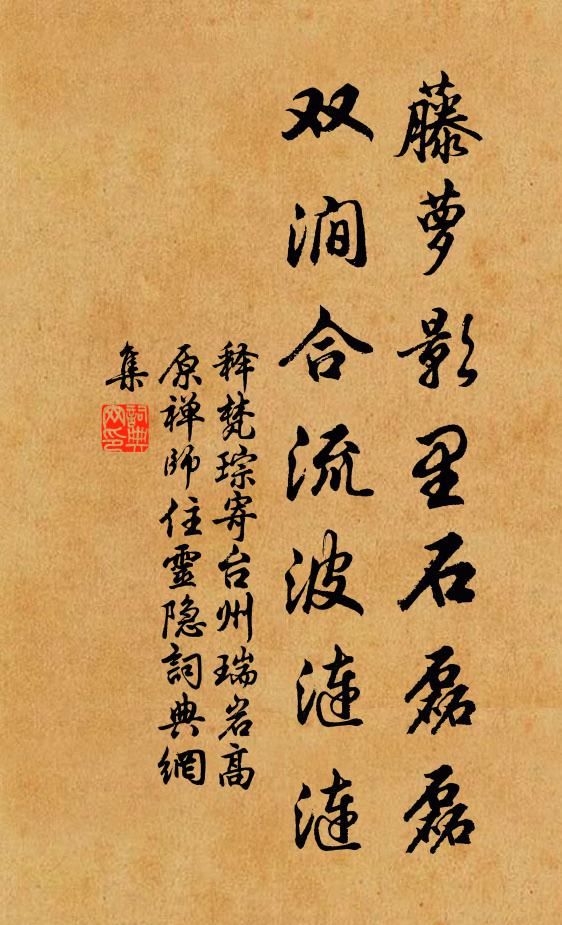 藤萝影里石磊磊
双涧合流波涟涟
释梵琮寄台州瑞岩高
原禅师住靈隐詞典網
集
詞典
网印